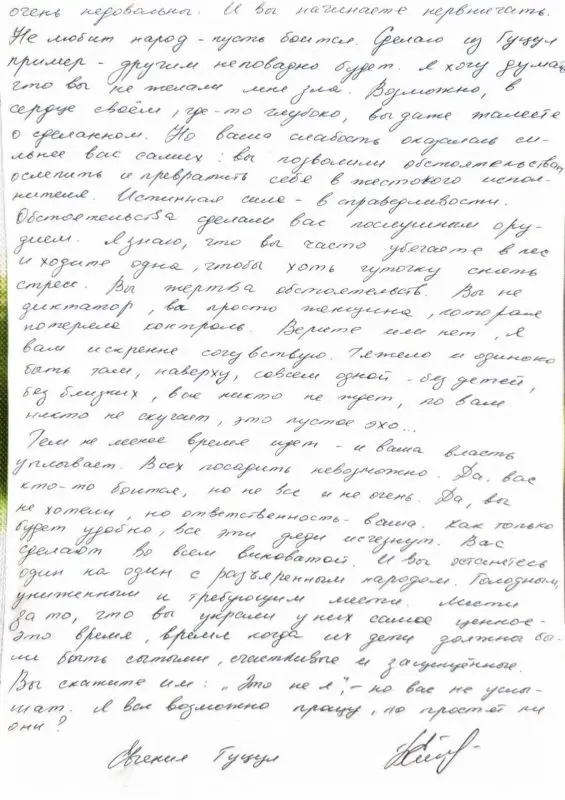 очень недовольны. И вы начинаете нервничать.
Не любит народ - пусть боится. Сделаю из Гуцул
пример - другим неповадно будет. Я хочу думать
что вы не желали мне зла. Возможно, в
сердце своём, где-то глубоко, вы даже жалеете
о сделанном. Но ваша слабость оказалась си-
льнее вас самих: вы позволили обстоятельствам
ослепить и превратить себя в жестокого испол-
нителя. Истинная сила - в справедливости.
Обстоятельства сделали вас послушным ору-
дием. Я знаю, что вы часто убегаете в лес
и ходите одна, чтобы хоть чуточку снять
стресс. Вы жертва обстоятельств. Вы не
диктатор, вы просто женщина, которая
потеряла контроль. Верите или нет, я
вам искренне сочувствую. Тяжело и одиноко
быть там, наверху, совсем одной - без детей,
без близких, вас никто не ждет, по вам
никто не скучает, это пустое эхо...
Тем не менее время идет - и ваша власть
уплывает. Всех посадить невозможно. Да, вас
кто-то боится, но не все и не очень. Да, вы
не хотели, но ответственность - ваша. Как только
будет удобно, все эти люди исчезнут. Вас
сделают во всем виноватой. И вы останетесь
один на один с разъяренным народом. Голодным,
униженным и требующим мести. Мести
за то, что вы украли у них самое ценное -
это время, время когда их дети должны бы-
ли быть сытыми, счастливые и защищённые.
Вы скажите им: „Это не я", - но вас не услы-
шат. Я вас возможно прощу, но простят ли
они?
Евгения Гуцул